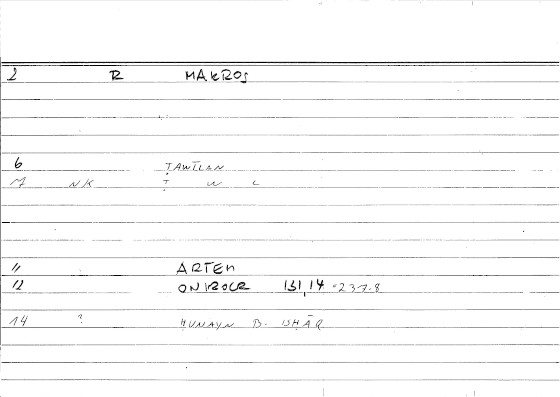 2 R MAKROS
6 ṬAWĪLAN
7 NK Ṭ W L
11 ARTEM
12 ONIROCR 131,14 -237.8
14 ? ḤUNAYN B. ISḤĀQ